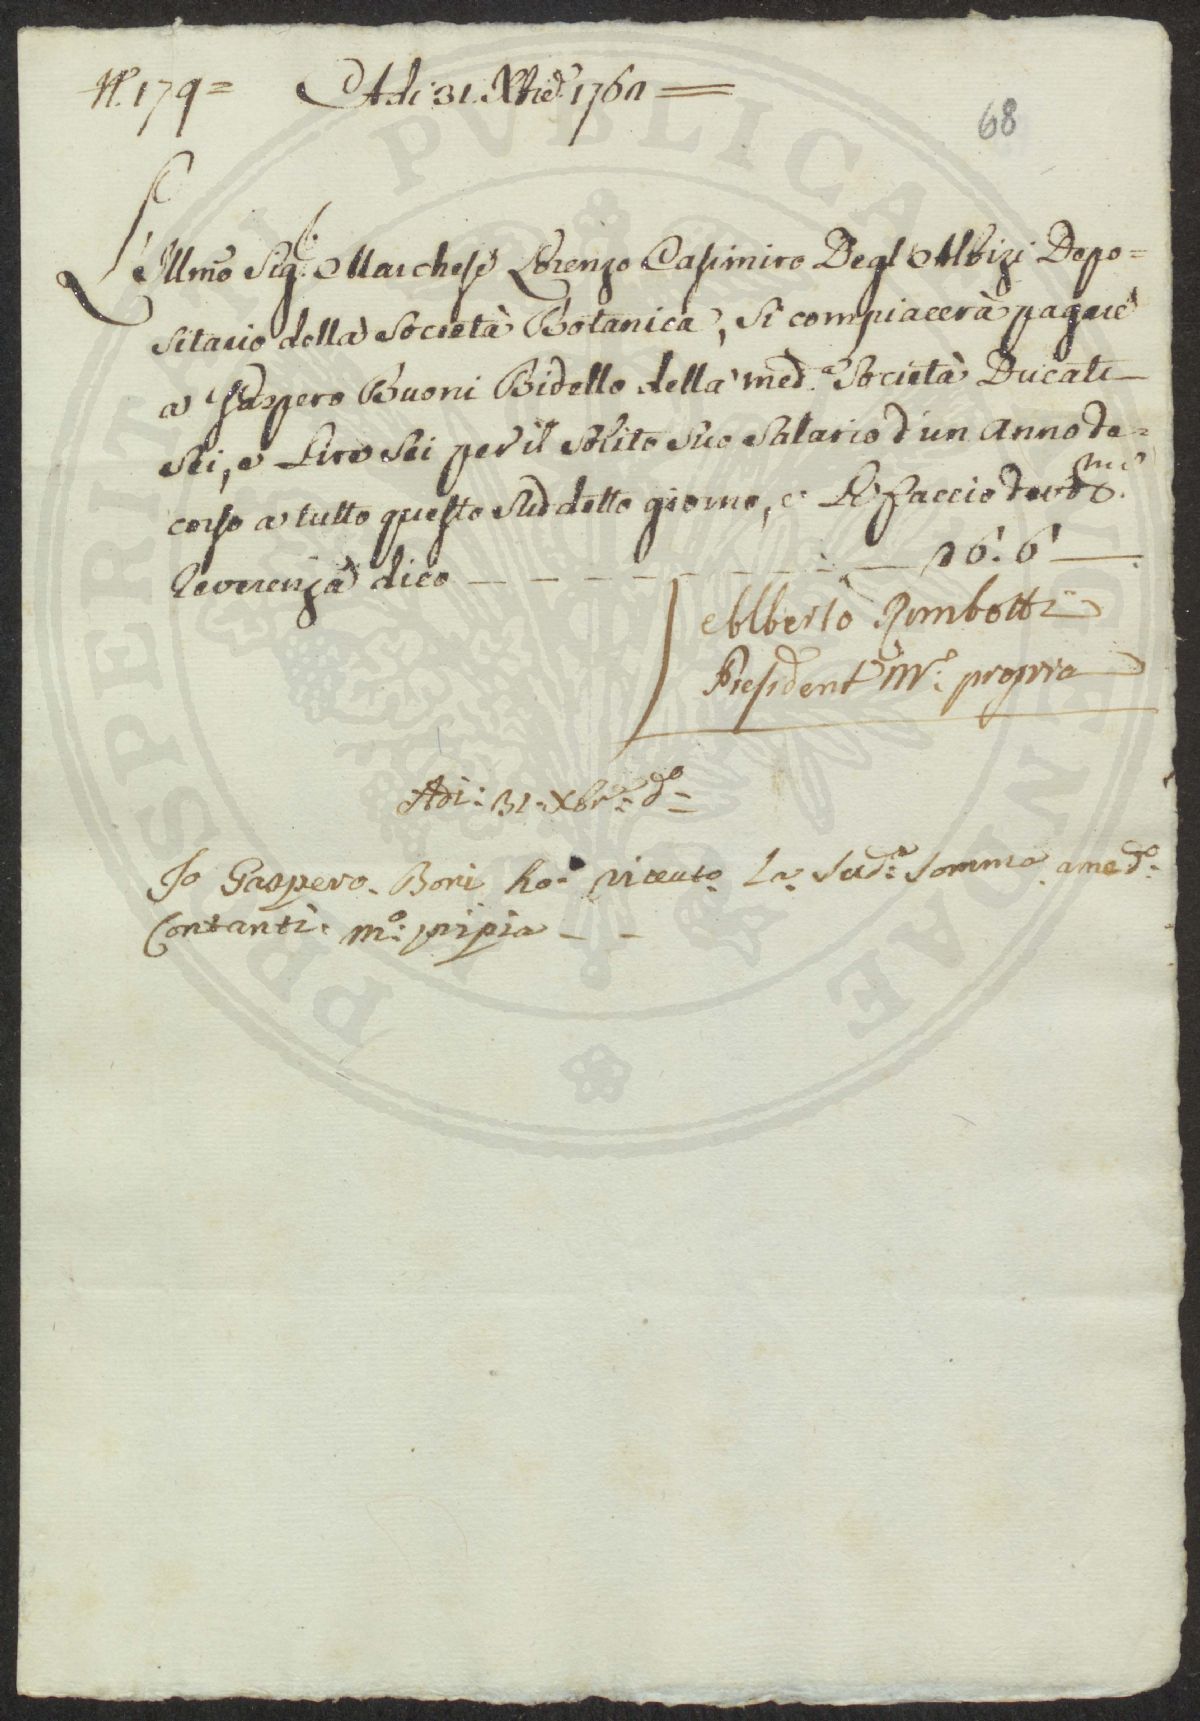 N.° 179= Adi 31. Xbre. 1760
68
L'Illmo Sig.r Marchese Lorenzo Casimiro Degl'Albizi Depo=
sitario della Società Botanica, si compiacerà pagare
a Gaspero Buoni Bidello della med.a Società Ducati
Sei, e Lire Sei per il solito suo salario d'un Anno de=
corso a tutto questo suddetto giorno, e Le faccio devotma
Reverenza dico — — — — — — 6. 6 —
Alberto Rimbotti
Presidente M.o propria
Adi: 31: Xbre: d.o=
Io Gaspero. Boni ho: riceuto. La. Sud.a Somma. a me d.o:
Contanti: m.o: pipia — —
PROSPERITATI PVBLICAE AVGENDAE